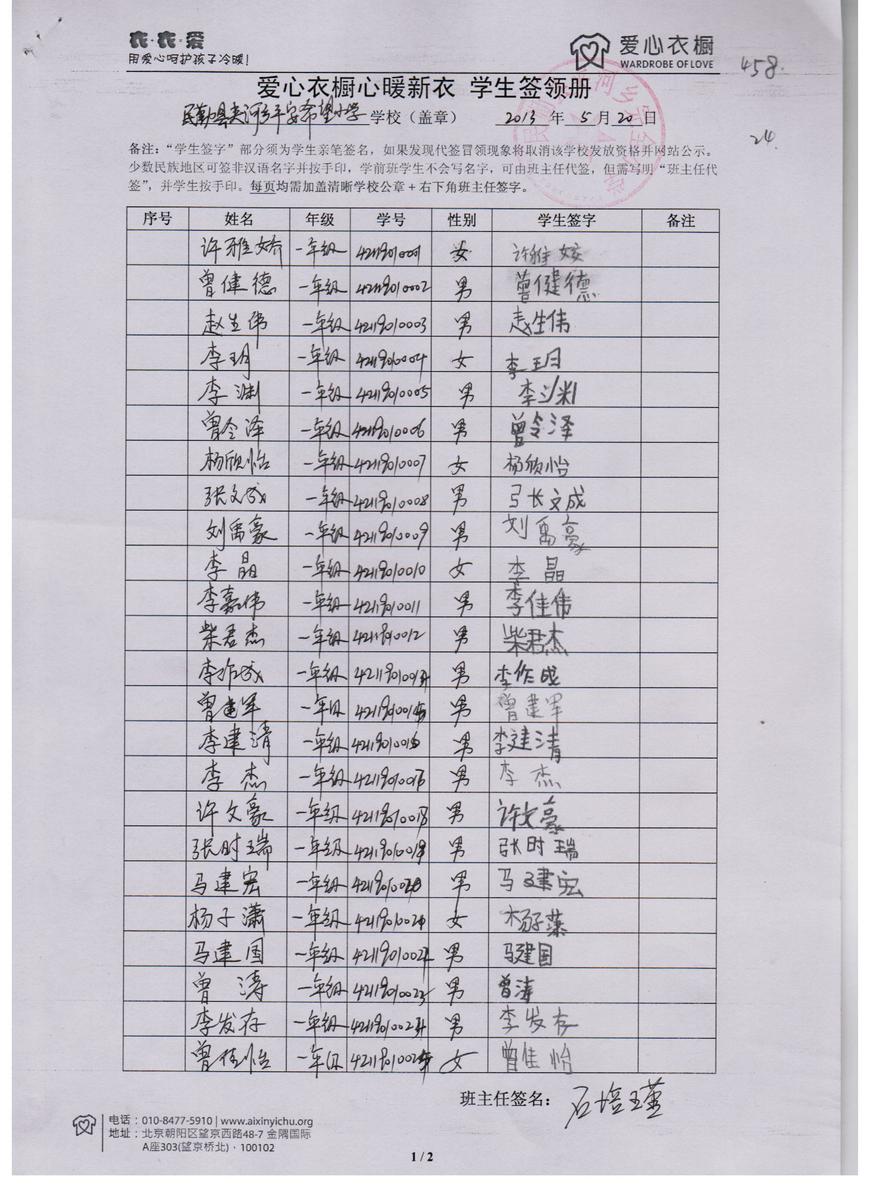 衣·衣·爱
用爱心呵护孩子冷暖!
爱心衣橱
WARDROBE OF LOVE
458.
爱心衣橱心暖新衣 学生签领册
民勤县夹河乡平安希望小学 学校（盖章） 2013 年 5 月 20 日
24.
备注：“学生签字”部分须为学生亲笔签名，如果发现代签冒领现象将取消该学校发放资格并网站公示。
少数民族地区可签非汉语名字并按手印，学前班学生不会写名字，可由班主任代签，但需写明“班主任代
签”，并学生按手印。每页均需加盖清晰学校公章＋右下角班主任签字。
序号 姓名 年级 学号 性别 学生签字 备注
许雅娇 一年级 42119010001 女 许雅娇
曾健德 一年级 42119010002 男 曾健德
赵生伟 一年级 42119010003 男 赵生伟
李玥 一年级 42119010004 女 李玥
李渊 一年级 42119010005 男 李渊
曾令泽 一年级 42119010006 男 曾令泽
杨欣怡 一年级 42119010007 女 杨欣怡
张文成 一年级 42119010008 男 张文成
刘禹豪 一年级 42119010009 男 刘禹豪
李晶 一年级 42119010010 女 李晶
李嘉伟 一年级 42119010011 男 李佳伟
柴君杰 一年级 42119010012 男 柴君杰
李作成 一年级 男 李作成
曾建军 一年级 男 曾建军
李建清 一年级 男 李建清
李杰 一年级 男 李杰
许文豪 一年级 男 许文豪
张时瑞 一年级 男 张时瑞
马建宏 一年级 男 马建宏
杨子潇 一年级 女 杨子
马建国 一年级 男 马建国
曾涛 一年级 男 曾涛
李发存 一年级 男 李发存
曾佳怡 一年级 女 曾佳怡
班主任签名： 石培瑾
电话：010-8477-5910 | www.aixinyichu.org
地址：北京朝阳区望京西路48-7 金隅国际
A座303(望京桥北)·100102
1 / 2